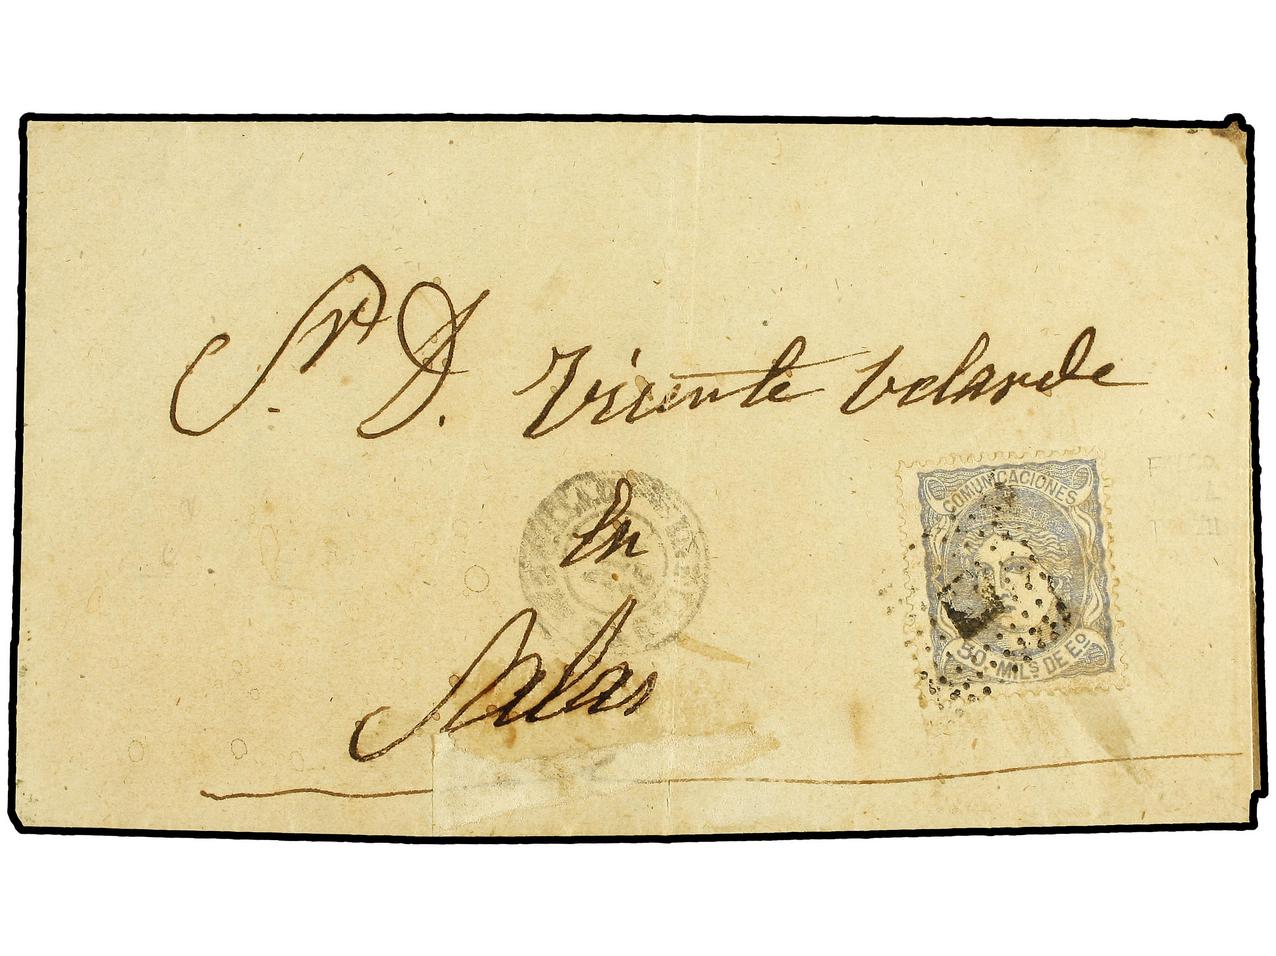 Sr. D. Vicente Velarde
En
Salas
COMUNICACIONES
50. MILS. DE EO.